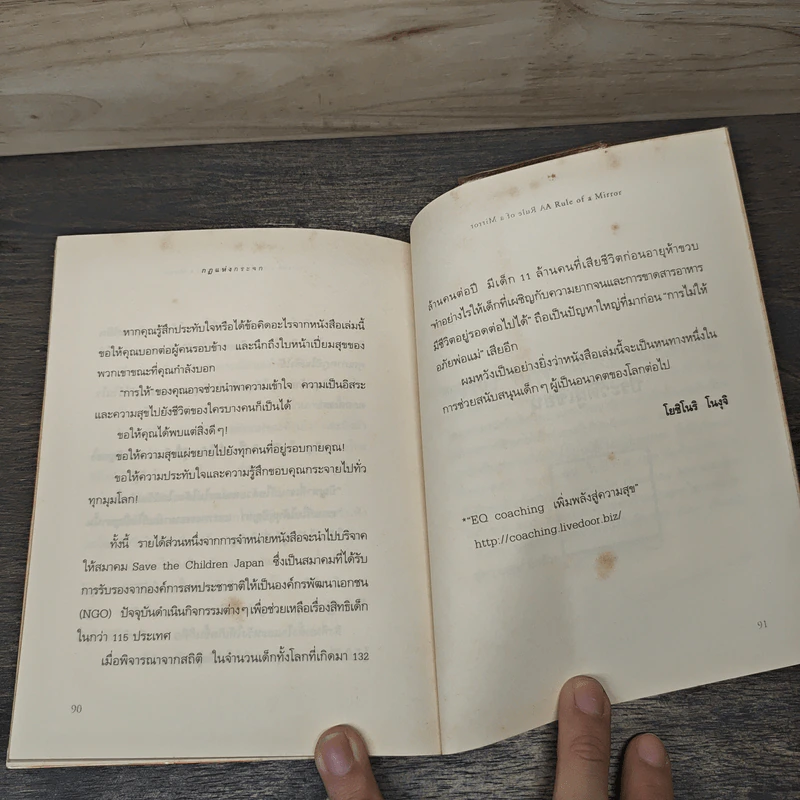 กฎแห่งกระจก
หากคุณรู้สึกประทับใจหรือได้ข้อคิดอะไรจากหนังสือเล่มนี้
ขอให้คุณบอกต่อผู้คนรอบข้าง และนึกถึงใบหน้าเปี่ยมสุขของ
พวกเขาขณะที่คุณกำลังบอก
"การให้" ของคุณอาจช่วยนำพาความเข้าใจ ความเป็นอิสระ
และความสุขไปยังชีวิตของใครบางคนก็เป็นได้
ขอให้คุณได้พบแต่สิ่งดีๆ!
ขอให้ความสุขแผ่ขยายไปยังทุกคนที่อยู่รอบกายคุณ!
ขอให้ความประทับใจและความรู้สึกขอบคุณกระจายไปทั่ว
ทุกมุมโลก!
ทั้งนี้ รายได้ส่วนหนึ่งจากการจำหน่ายหนังสือจะนำไปบริจาค
ให้สมาคม Save the Children Japan ซึ่งเป็นสมาคมที่ได้รับ
การรับรองจากองค์การสหประชาชาติให้เป็นองค์กรพัฒนาเอกชน
(NGO) ปัจจุบันดำเนินกิจกรรมต่างๆ เพื่อช่วยเหลือเรื่องสิทธิเด็ก
ในกว่า 115 ประเทศ
เมื่อพิจารณาจากสถิติ ในจำนวนเด็กทั้งโลกที่เกิดมา 132
90
A Rule of a Mirror A Rule of a Mirror
ล้านคนต่อปี มีเด็ก 11 ล้านคนที่เสียชีวิตก่อนอายุห้าขวบ
"ทำอย่างไรให้เด็กที่เผชิญกับความยากจนและการขาดสารอาหาร
มีชีวิตอยู่รอดต่อไปได้" ถือเป็นปัญหาใหญ่ที่มาก่อน "การไม่ให้
อภัยพ่อแม่" เสียอีก
ผมหวังเป็นอย่างยิ่งว่าหนังสือเล่มนี้จะเป็นหนทางหนึ่งใน
การช่วยสนับสนุนเด็กๆ ผู้เป็นอนาคตของโลกต่อไป
โยชิโนริ โนงุจิ
*"EQ coaching เพิ่มพลังสู่ความสุข"
http://coaching.livedoor.biz/
91